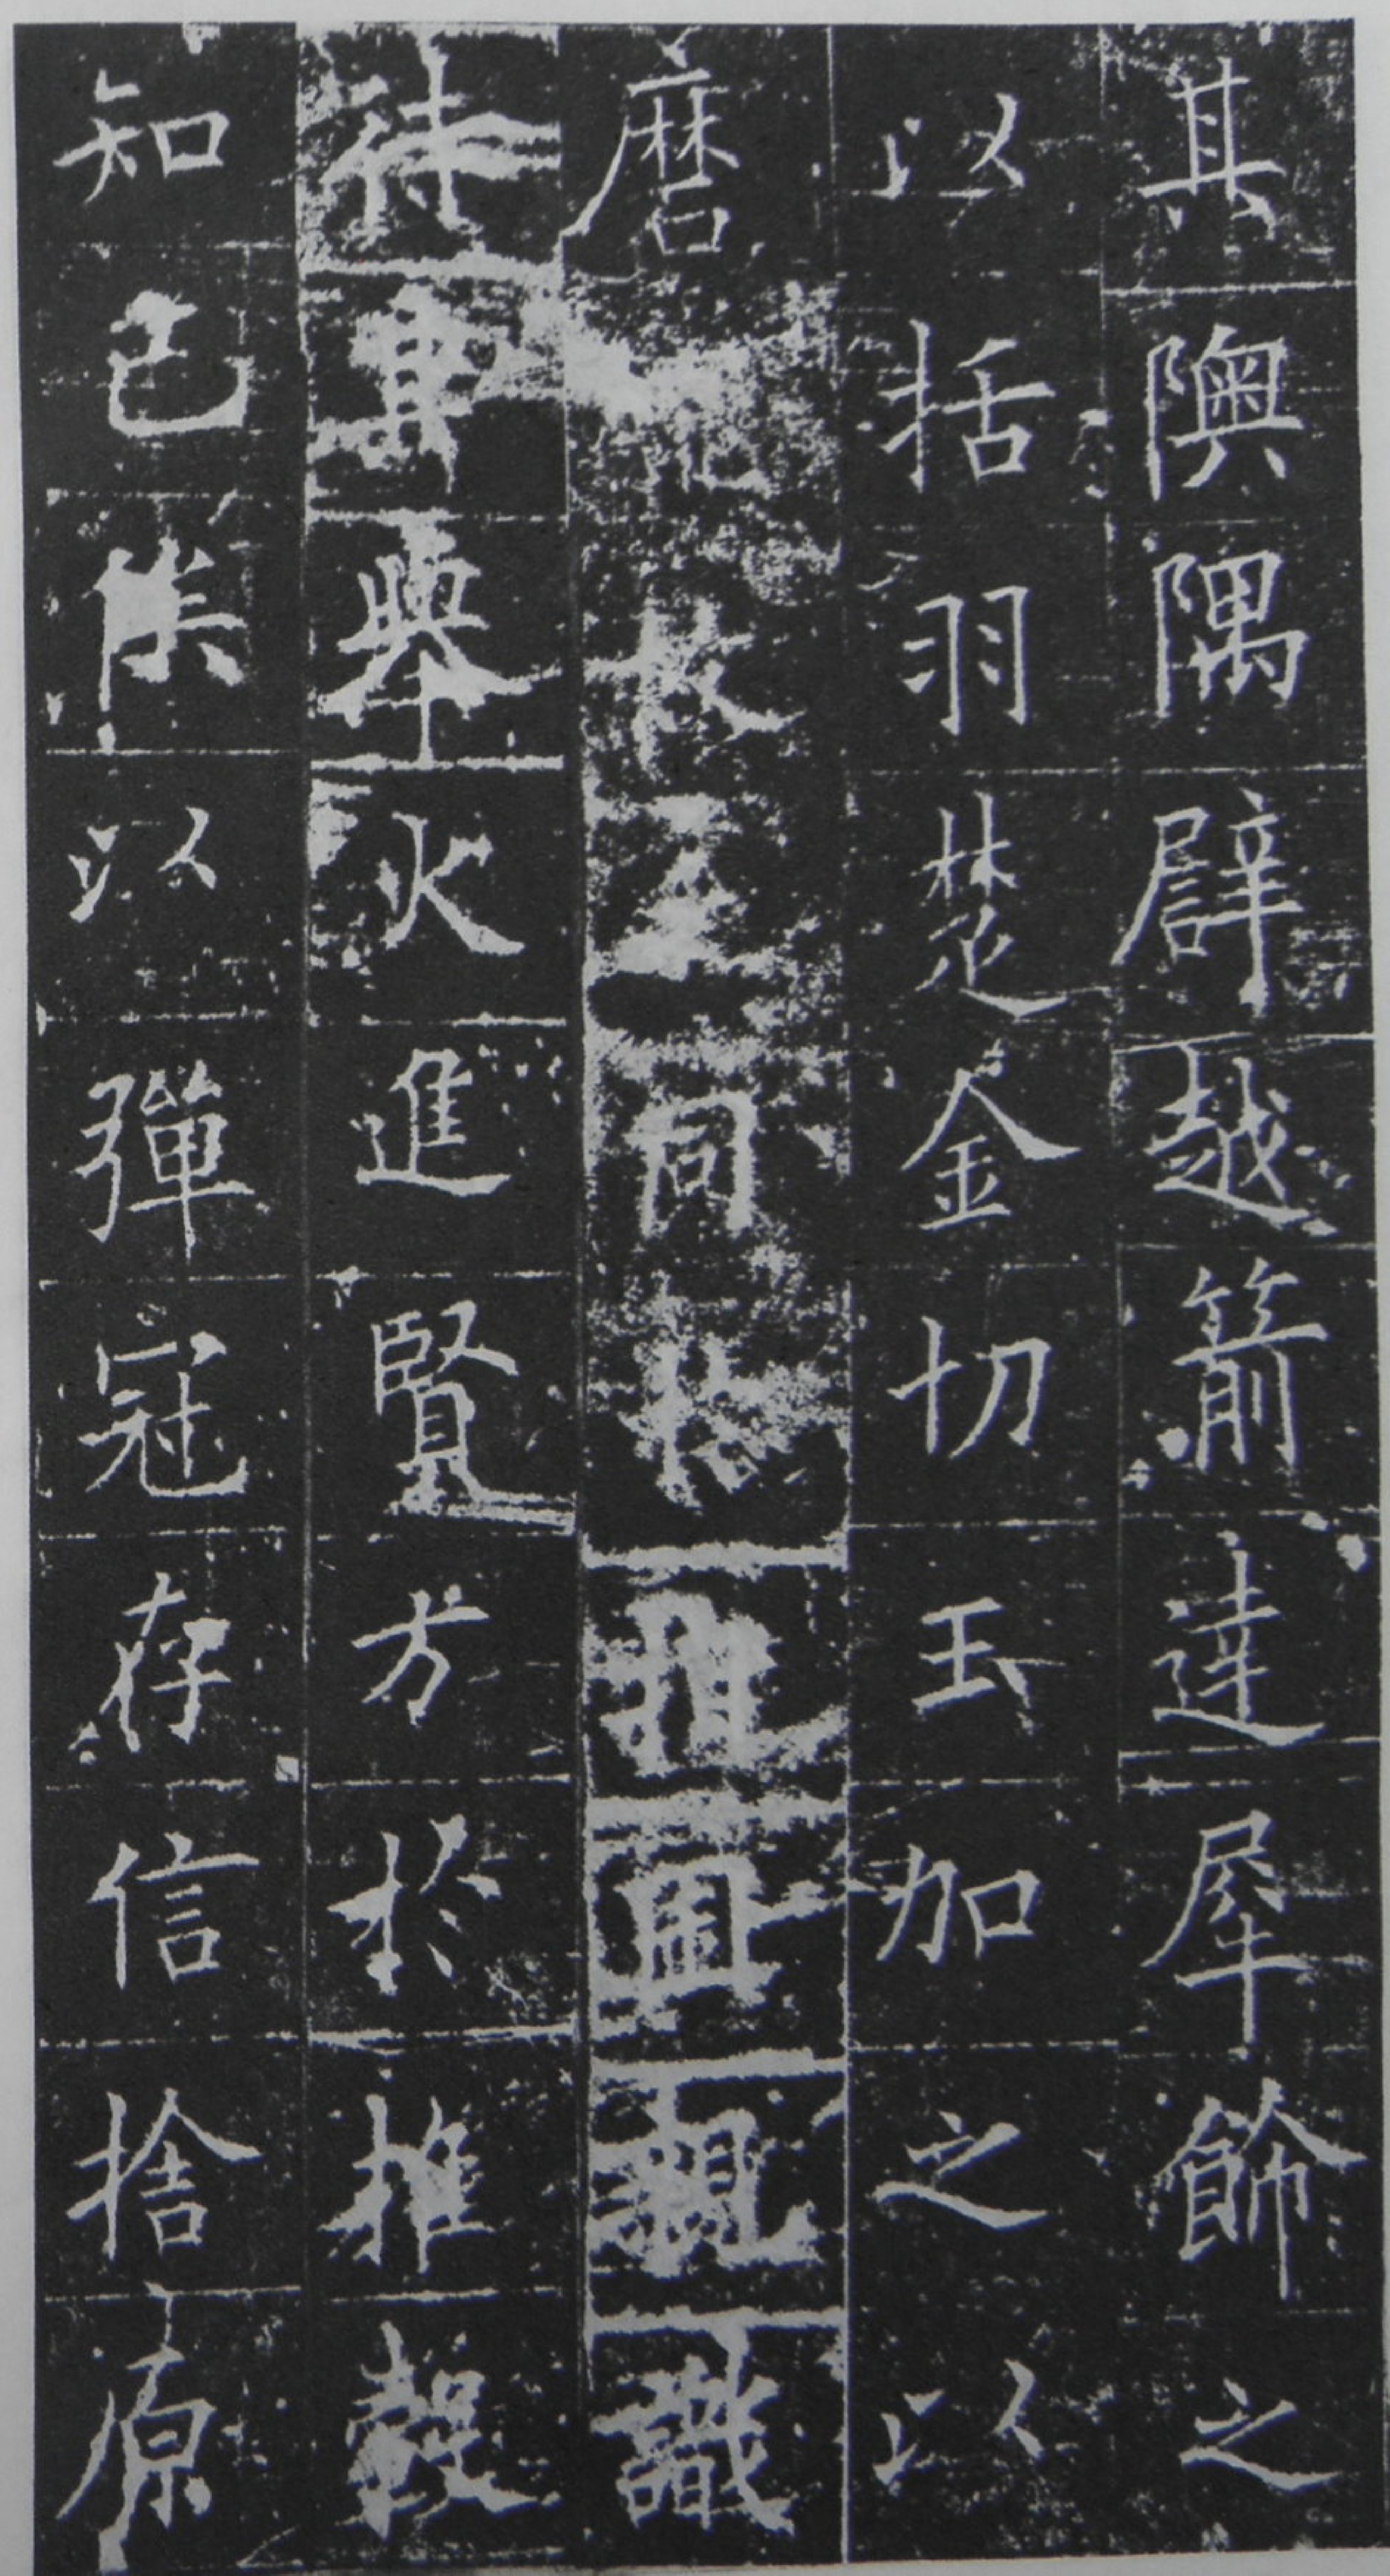 其隩隅譬越箭達犀飾之
以括羽楚金切玉加之以
磨故同識
待舉火進賢方於推轂
知己俟以彈冠存信捨原